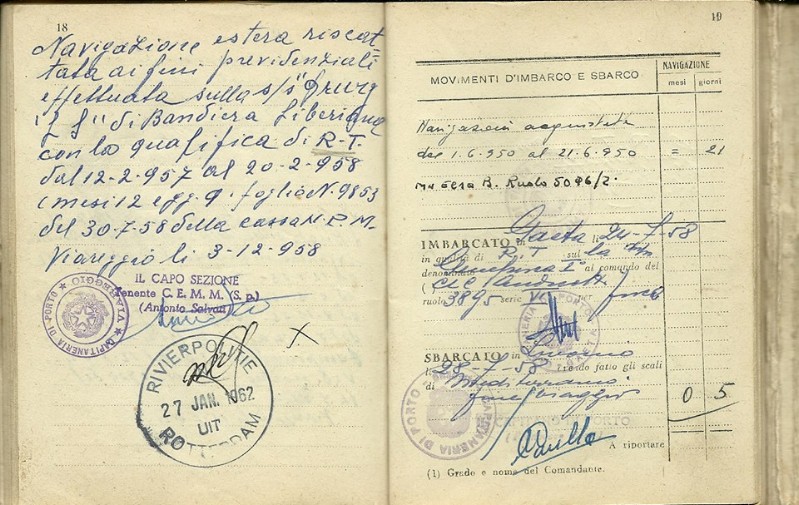 18
Navigazione estera riscat=
tata ai fini previdenziali
effettuata sulla s/s "Drury
" di Bandiera Liberiana
con la qualifica di R.T.
dal 12-2-957 al 20-2-958
(mesi 12 e gg. 9. foglio N. 9853
del 30-7-58 della cassa N.P.M.
Viareggio li 3-12-958
IL CAPO SEZIONE
Tenente C. E. M. M. (S. p.)
(Antonio Salvati)
CAPITANERIA DI PORTO
VIAREGGIO
RIVIERPOLITIE
27 JAN. 1962
UIT
ROTTERDAM
19
MOVIMENTI D'IMBARCO E SBARCO
NAVIGAZIONE
mesi giorni
Navigazioni acquistate
dal 1.6.950 al 21.6.950 = 21
B. Ruolo 5096/2.
IMBARCATO in Gaeta li 24-7-58
in qualità di R.T. sul la
denominato al comando del
ruolo 3895 serie
SBARCATO in Livorno
li 28-7-58 avendo fatto gli scali
di Mediterraneo
fine viaggio 0 5
CAPITANERIA DI PORTO
A riportare
(1) Grado e nome del Comandante.